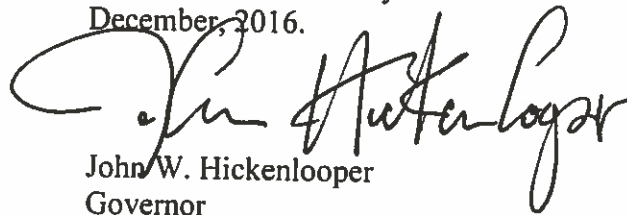 December, 2016.
John Hickenlooper
John W. Hickenlooper
Governor